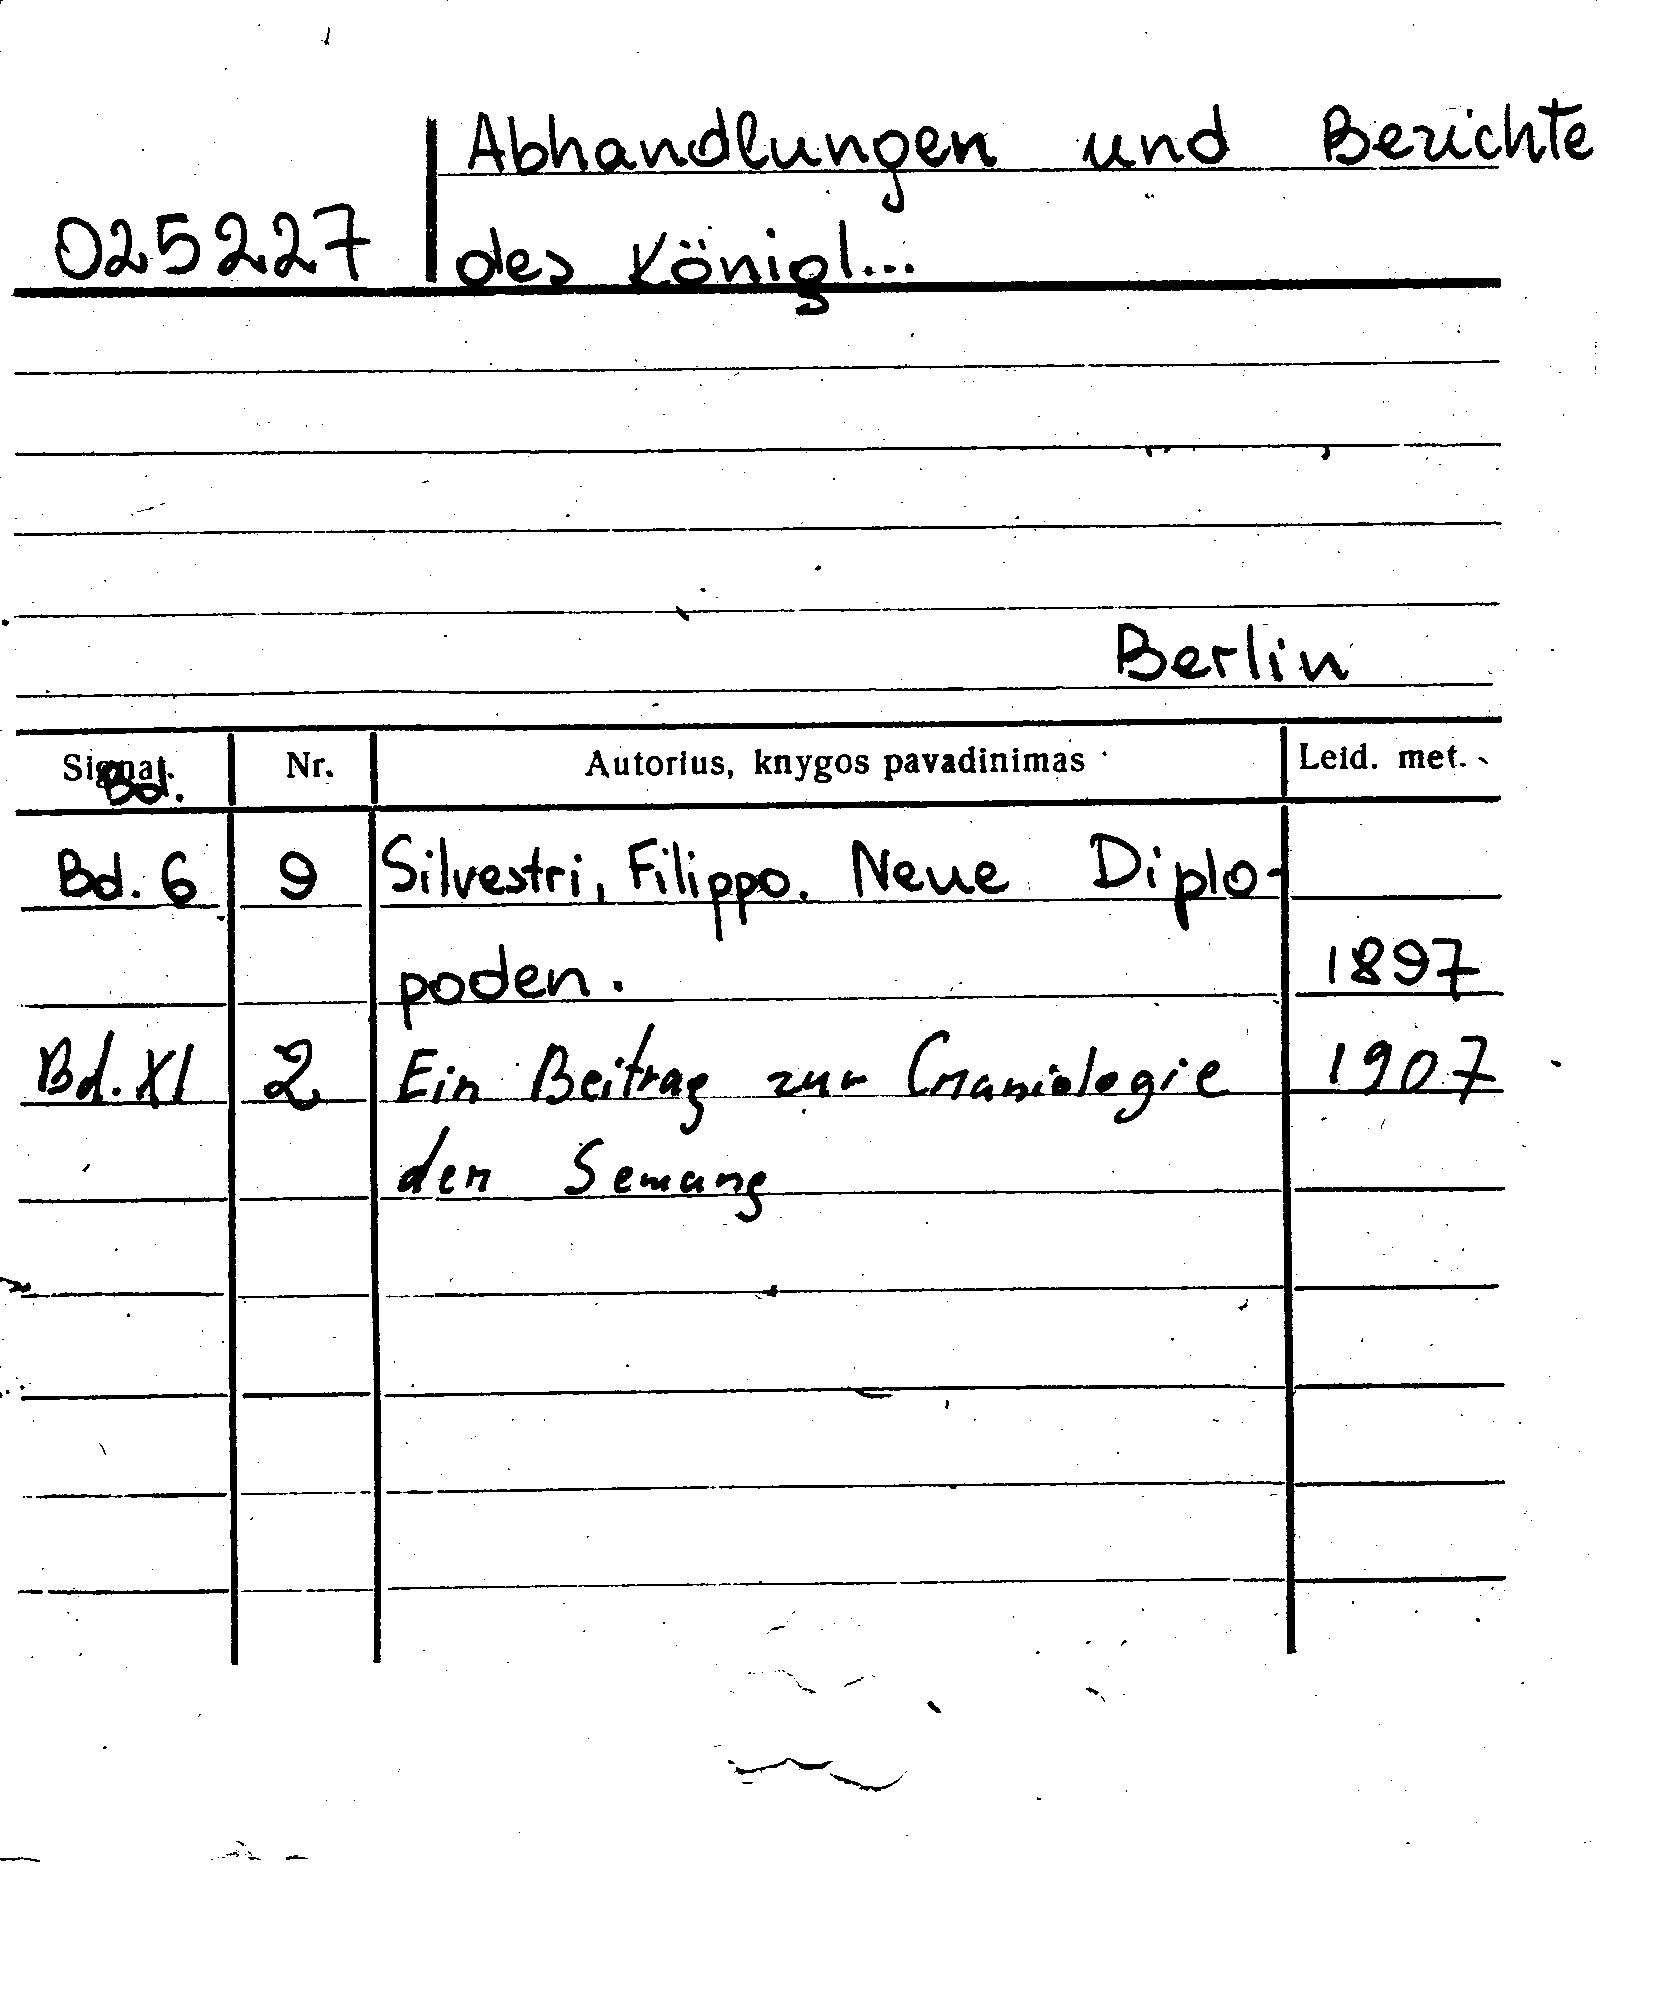 Abhandlungen und Berichte
025227 des Königl...
Berlin
Signat. Nr. Autorius, knygos pavadinimas Leid. met.
Bd.
Bd. 6 9 Silvestri, Filippo. Neue Diplo-
poden. 1897
Bd. XI 2 Ein Beitrag zur Craniologie 1907
der Semang